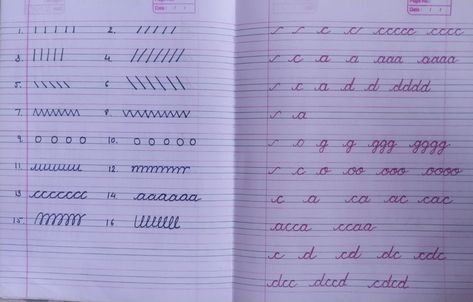 Date : / /
1. | | | | | | 2. / / / / /
3 | | | | | 4. / / / / / / /
5. \ \ \ \ \ 6 \ \ \ \ \ \
7. 8.
9. o o o o 10. o o o o o
11. uuuuuu 12. mmmmm
13 ccccccc 14. aaaaaa
15. 16 lllllll
Page No.:
Date : / /
c ccccc cccc
c a a aaa aaaa
c a d d dddd
a
o g g ggg gggg
c o oo ooo oooo
c a ca ac cac
acca ccaa
c d cd dc cdc
dcc dccd cdcd